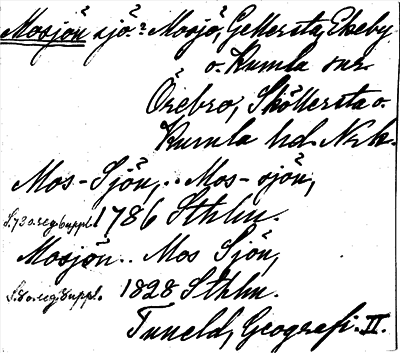 Mosjön sjö: Mosjö, Gällersta, Ekeby
o. Kumla snr
Örebro, Sköllersta o.
Kumla hd. Nrk.
Mos-Sjön, .. Mos-sjön,
S. 73 o. reg. 6 uppl. 1786 Sthlm.
Mosjön .. Mos Sjön,
S. 80. reg. 8 uppl. 1828 Sthlm.
Tuneld, Geografi. II.